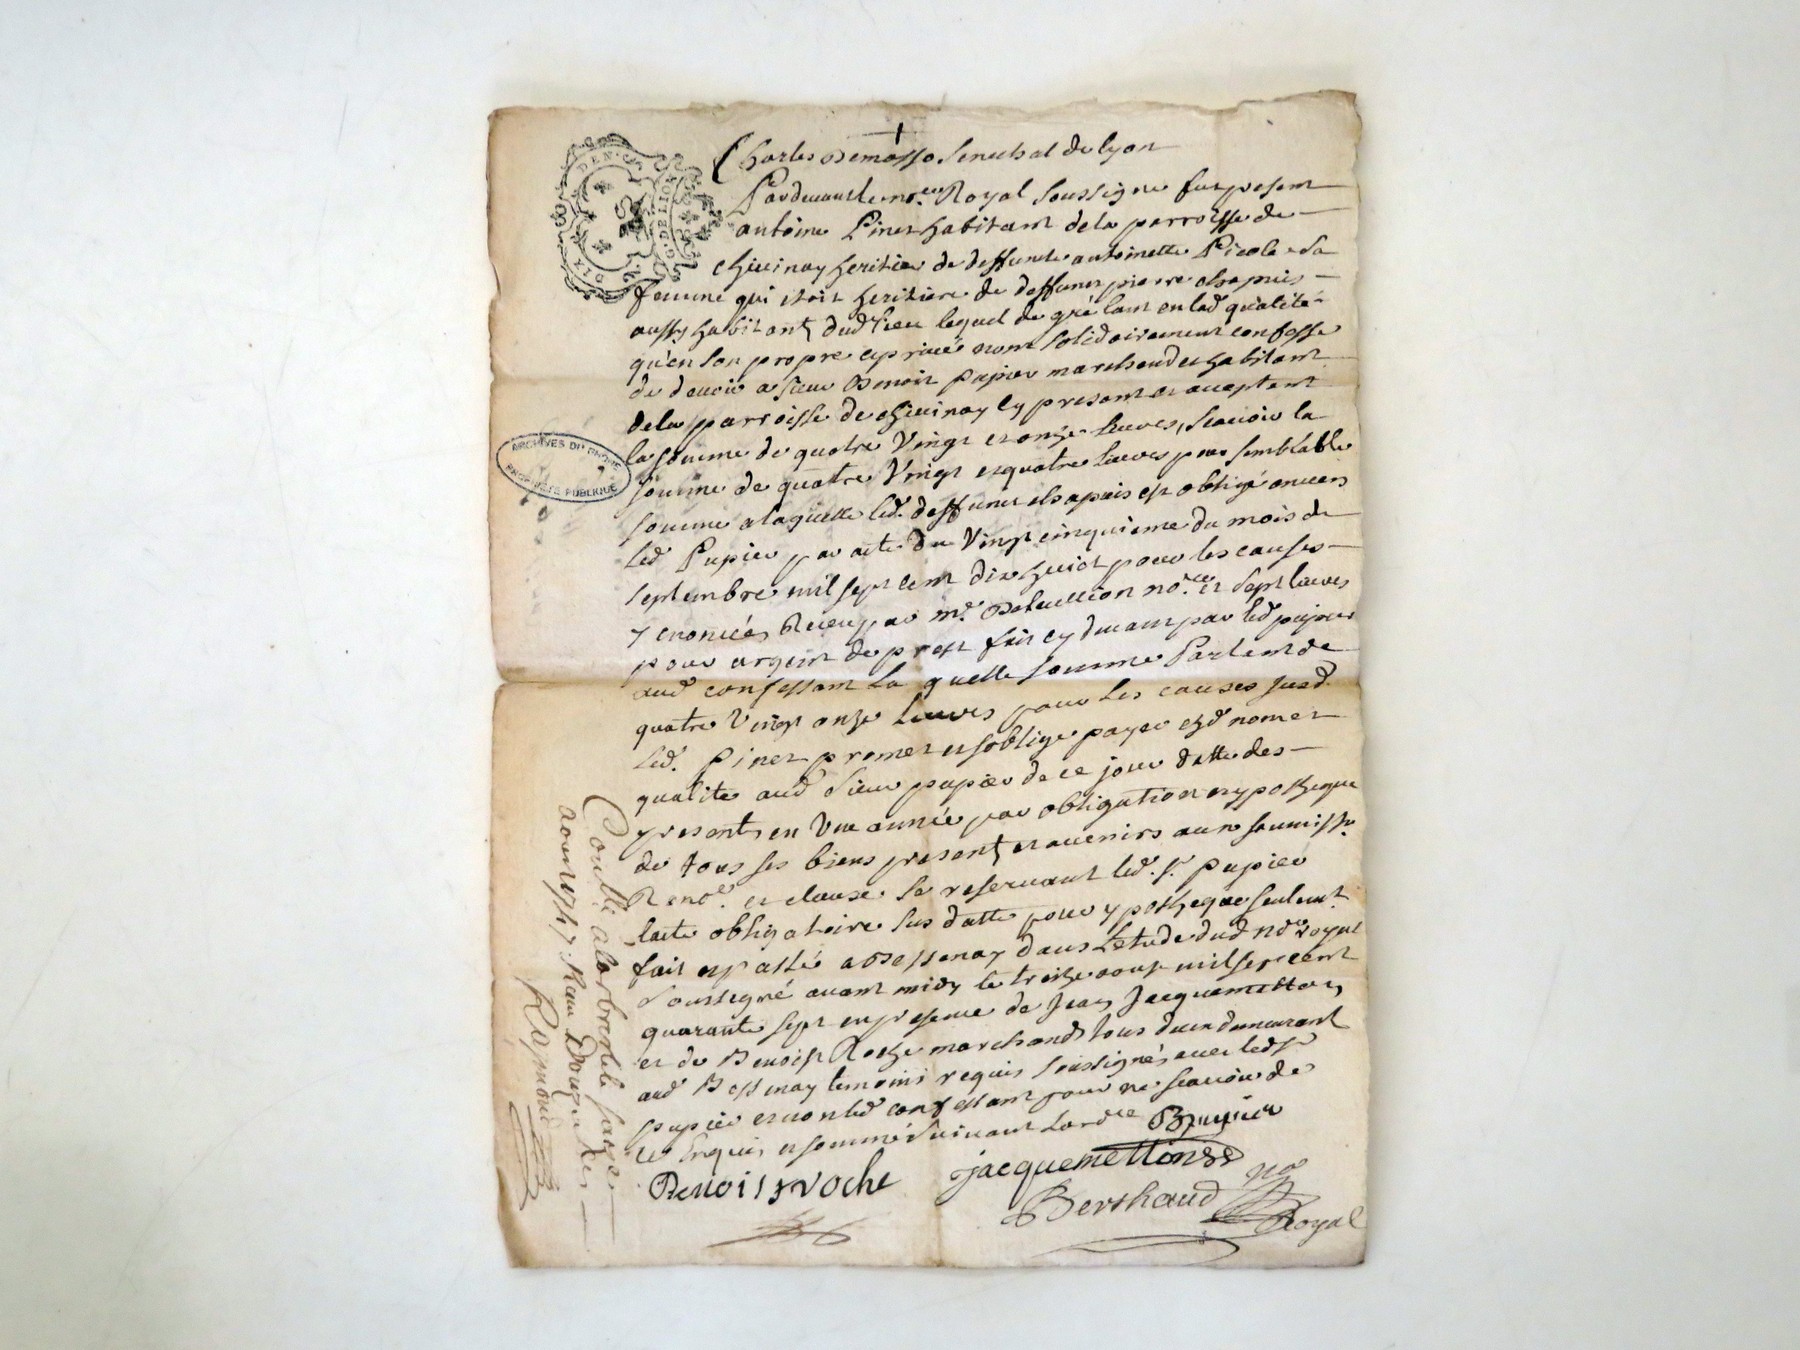 Charles Demasso Senechal de lyon
Pardevant le no.re Royal Soussigne fut present
antoine Pinet habitant de la parroisse de
chivinay heritier de deffunte antoinette Picole Sa
femme qui etoit heritiere de deffunct pierre chapuis
aussy habitant dud lieu lequel de gré tant en lad qualité
qu'en son propre et privé nom solidairement confesse
de devoir a sieur Benoit pupier marchand et habitant
de la parroisse de chivinay cy present et acceptant
la somme de quatre Vingt et onze livres, scavoir la
somme de quatre Vingt et quatre livres pour semblable
somme a laquelle led. deffunct chapuis est obligé envers
led Pupier par acte du Vingt cinquieme du mois de
septembre mil sept cent dix huict pour les causes
y enoncées Receu par m.e no.re et sept livres
pour argent de prest fait cy devant par led pupier
aud confessant la quelle somme Partent de
quatre Vingt onze livres pour les causes susd
led. Pinet promet et s'oblige payer esd nom et
qualite aud Sieur pupier de ce jour datte des
presents en Une année par obligation et ypotheque
de tous ses biens present et avenirs aux soumiss.
Reno. et clause se reservant led. s.r pupier
lacte obligatoire sus datte pour ypotheque seulem.t
fait et passé a Bessenay dans L'etude dud no.re royal
soussigné avant midy le treize aout mil sept cent
quarante sept en presence de Jean Jacquemetton
et de Benoist Roche marchands tous deux demeurant
aud Bessenay temoins requis soussignés avec led s.r
pupier et non led confessant pour ne scavoir de
ce Enquis et sommé Suivant Lord.ce BPupier
Benoist roche Jacquemetton
Berthaud no.re
Royal
Conllé a larbresle le seize
aout 1747. Recu Douze sols
Raymond
GEN. DE LION
ARCHIVES DU RHÔNE
PROPRIÉTÉ PUBLIQUE